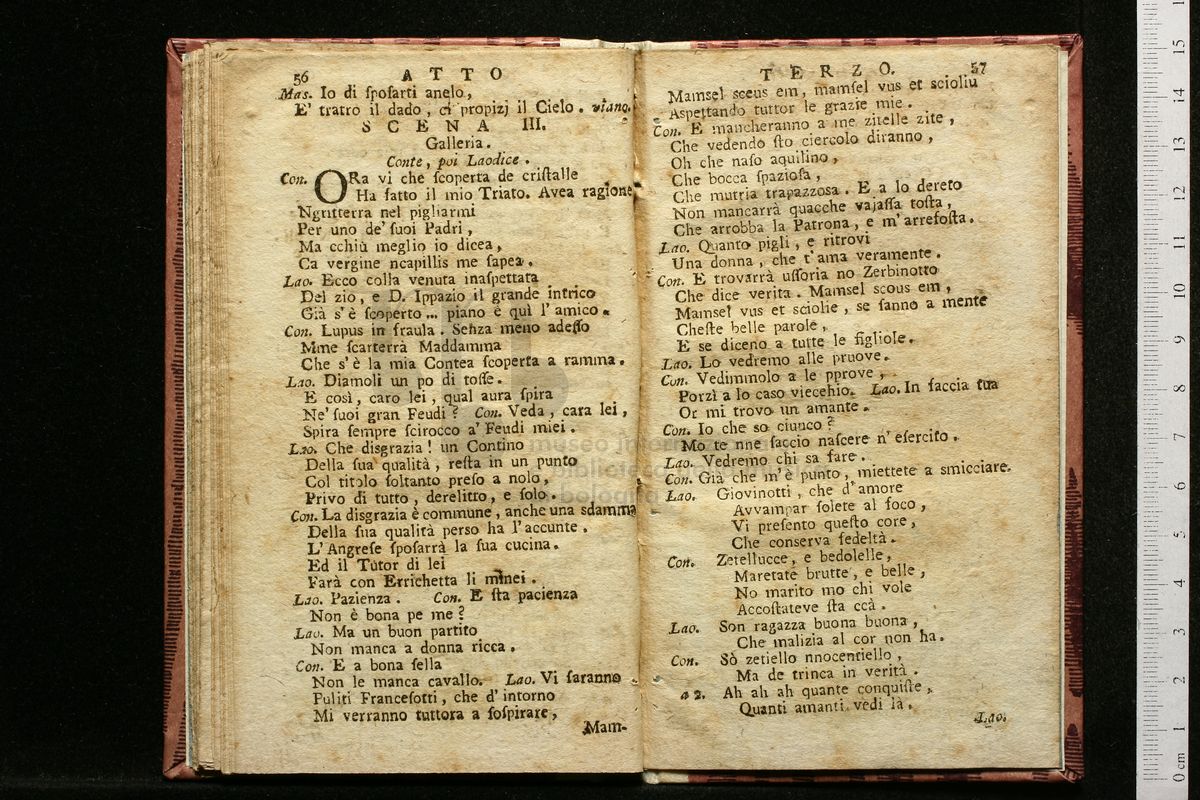 56 ATTO
Mas. Io di ſpoſarti anelo,
E' tratro il dado, ci propizj il Cielo. viano.
SCENA III.
Galleria.
Conte, poi Laodice.
Con. ORa vi che ſcoperta de criſtalle
Ha fatto il mio Triato. Avea ragione
Ngritterra nel pigliarmi
Per uno de' ſuoi Padri,
Ma cchiù meglio io dicea,
Ca vergine ncapillis me ſapea.
Lao. Ecco colla venuta inaſpettata
Del zio, e D. Ippazio il grande intrico
Già s'è ſcoperto... piano è quì l'amico.
Con. Lupus in fraula. Senza meno adeſſo
Mme ſcarterrà Maddamma
Che s'è la mia Contea ſcoperta a ramma.
Lao. Diamoli un po di toſſe.
E così, caro lei, qual aura ſpira
Ne' ſuoi gran Feudi? Con. Veda, cara lei,
Spira ſempre ſcirocco a' Feudi miei.
Lao. Che disgrazia! un Contino
Della ſua qualità, reſta in un punto
Col titolo ſoltanto preſo a nolo,
Privo di tutto, derelitto, e ſolo.
Con. La disgrazia è commune, anche una sdamma
Della ſua qualità perso ha l'accunte.
L'Angreſe ſpoſarrà la ſua cucina.
Ed il Tutor di lei
Farà con Errichetta li minei.
Lao. Pazienza. Con. E ſta pacienza
Non è bona pe me?
Lao. Ma un buon partito
Non manca a donna ricca.
Con. E a bona ſella
Non le manca cavallo. Lao. Vi ſaranno
Puliti Franceſotti, che d'intorno
Mi verranno tuttora a ſoſpirare,
Mam-
TERZO. 57
Mamsel sceus em, mamſel vus et scioliu
Aspettando tuttor le grazie mie.
Con. E mancheranno a me zitelle zite,
Che vedendo ſto ciercolo diranno,
Oh che naſo aquilino,
Che bocca ſpazioſa,
Che mutria trapazzosa. E a lo dereto
Non mancarrà quacche vajaſſa toſta,
Che arrobba la Patrona, e m'arrefoſta.
Lao. Quanto pigli, e ritrovi
Una donna, che t'ama veramente.
Con. E trovarrà uſſoria no Zerbinotto
Che dice verita. Mamsel scous em,
Mamsel vus et sciolie, se ſanno a mente
Cheſte belle parole,
E se diceno a tutte le figliole.
Lao. Lo vedremo alle pruove.
Con. Vedimmolo a le pprove,
Porzì a lo caso viecchio. Lao. In faccia tua
Or mi trovo un amante.
Con. Io che so ciunco?
Mo te nne faccio naſcere n'eſercito.
Lao. Vedremo chi sa fare.
Con. Già che m'è punto, miettete a smicciare.
Lao. Giovinotti, che d'amore
Avvampar ſolete al foco,
Vi preſento queſto core,
Che conſerva fedeltà.
Con. Zetellucce, e bedolelle,
Maretate brutte, e belle,
No marito mo chi vole
Accoſtateve ſta ccà.
Lao. Son ragazza buona buona,
Che malizia al cor non ha.
Con. Sò zetiello nnocentiello,
Ma de trinca in verità.
a 2. Ah ah ah quante conquiſte,
Quanti amanti vedi là.
Lao.